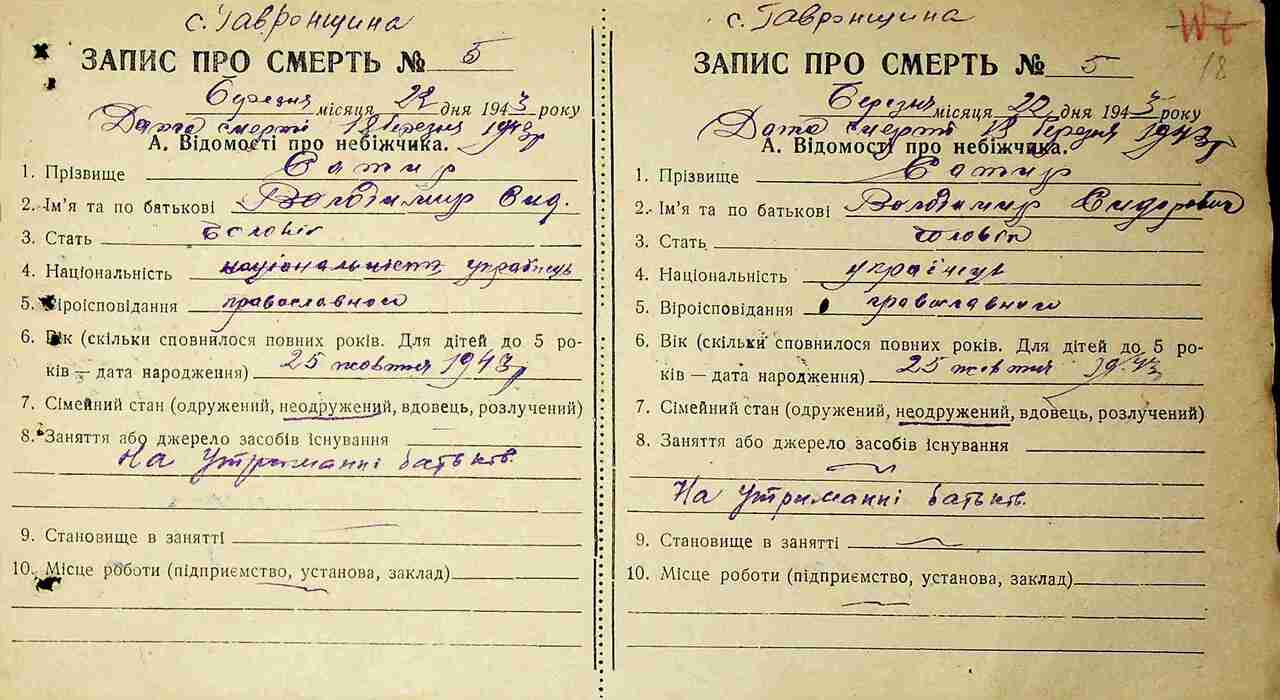 с. Гавронщина
ЗАПИС ПРО СМЕРТЬ № 5
Березня місяця 22 дня 1943 року
Дата смерти 18 березня 1943 р
А. Відомості про небіжчика.
1. Прізвище Сатир
2. Ім'я та по батькові Володимир Сид.
3. Стать Чоловік
4. Національність національність українець
5. Віроісповідання православного
6. Вік (скільки сповнилося повних років. Для дітей до 5 ро-
ків — дата народження) 25 жовтня 1943 р
7. Сімейний стан (одружений, неодружений, вдовець, розлучений)
8. Заняття або джерело засобів існування
На утриманні батьків.
9. Становище в занятті
10. Місце роботи (підприємство, установа, заклад)
с. Гавронщина
№7
18
ЗАПИС ПРО СМЕРТЬ № 5
Березня місяця 22 дня 1943 року
Дата смерти 18 березня 1943 р
А. Відомості про небіжчика.
1. Прізвище Сатир
2. Ім'я та по батькові Володимир Сидорович
3. Стать чоловік
4. Національність українець
5. Віроісповідання православного
6. Вік (скільки сповнилося повних років. Для дітей до 5 ро-
ків — дата народження) 25 жовтня 1943
7. Сімейний стан (одружений, неодружений, вдовець, розлучений)
8. Заняття або джерело засобів існування
На утриманні батьків.
9. Становище в занятті
10. Місце роботи (підприємство, установа, заклад)